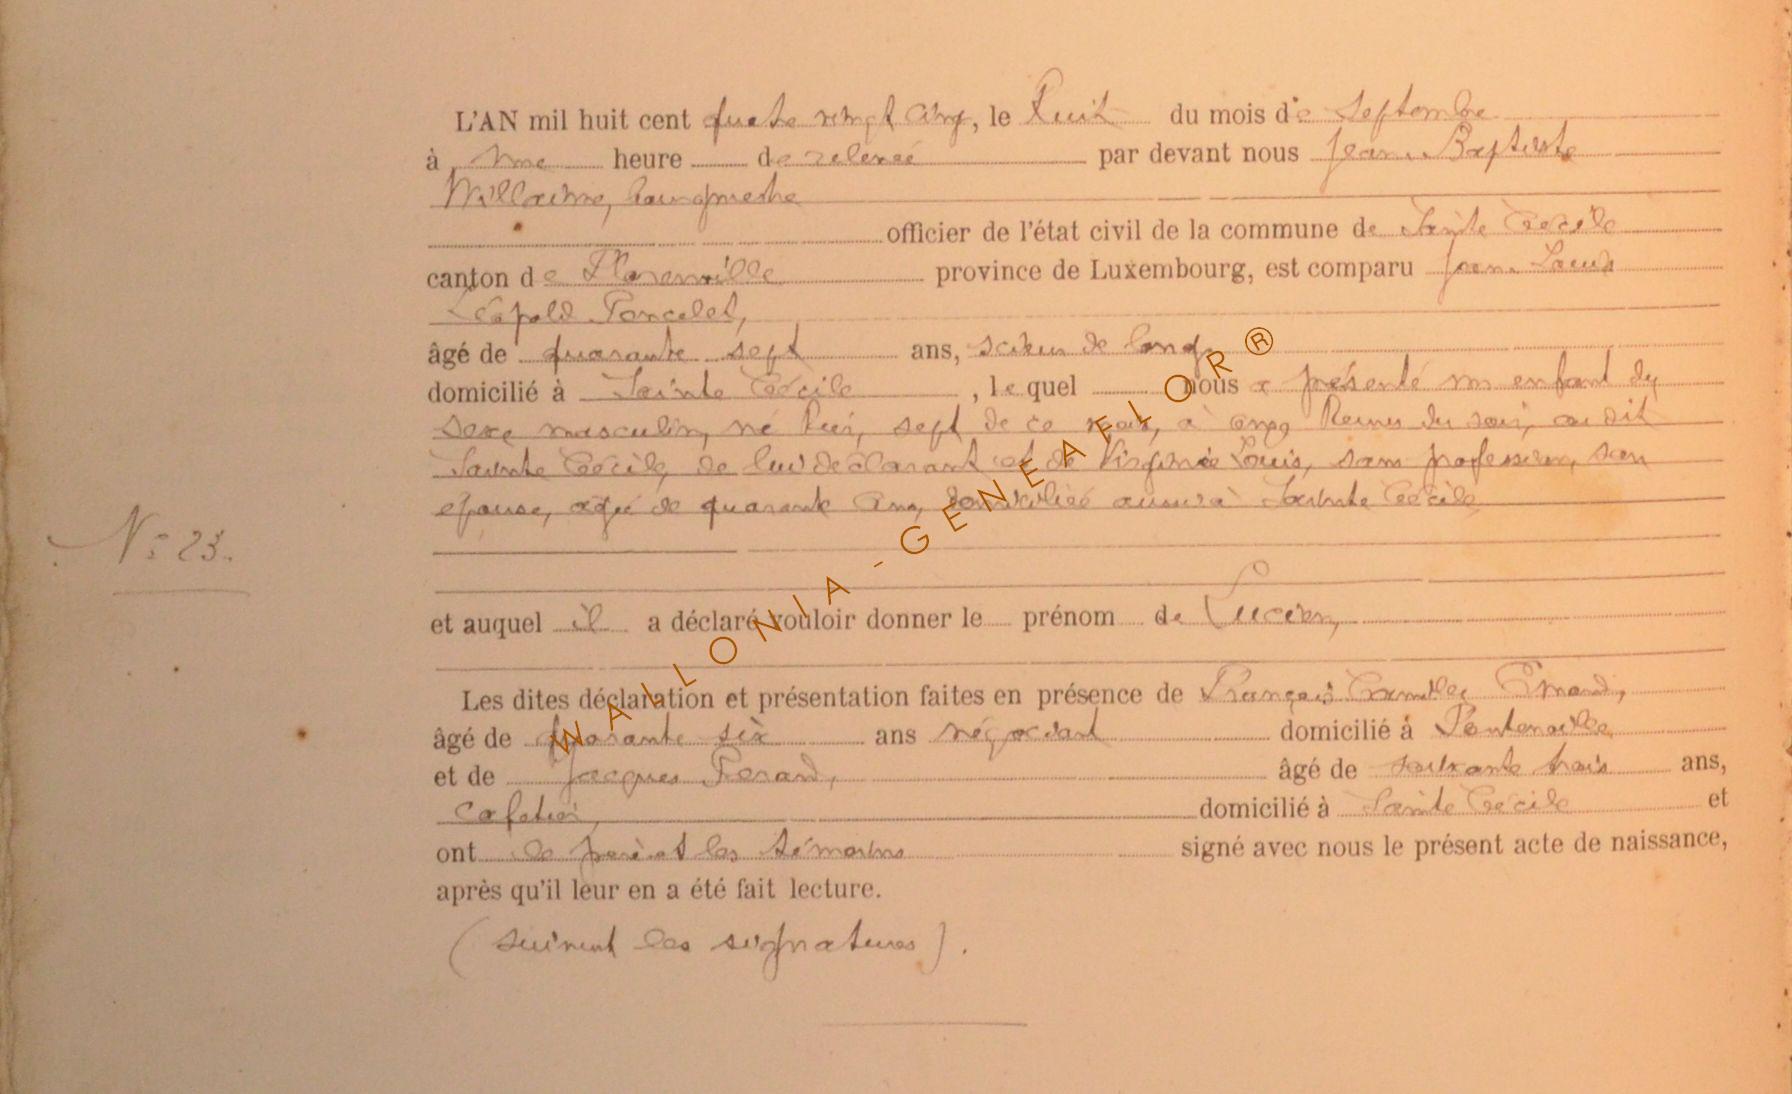 L'AN mil huit cent quatre vingt cinq, le huit du mois de Septembre
à une heure de relevée par devant nous Jean Baptiste
Willaime, bourgmestre
officier de l'état civil de la commune de Sainte Cécile
canton de Florenville province de Luxembourg, est comparu Jean Louis
Léopold Poncelet,
âgé de quarante sept ans, scieur de long,
domicilié à Sainte Cécile, le quel nous a présenté un enfant du
sexe masculin, né hier, sept de ce mois, à onze heures du soir, au dit
Sainte Cécile, de lui déclarant et de Virginie Louis, sans profession, son
épouse, agée de quarante ans, domiciliée aussi à Sainte Cécile
N° 23.
et auquel il a déclaré vouloir donner le prénom de Lucien,
Les dites déclaration et présentation faites en présence de François Camille
âgé de quarante six ans négociant domicilié à Fontenoille
et de Jacques âgé de soixante trois ans,
cafetier, domicilié à Sainte Cécile et
ont le père et les témoins signé avec nous le présent acte de naissance,
après qu'il leur en a été fait lecture.
(suivent les signatures).
WALLONIA-GENEAFLOR®